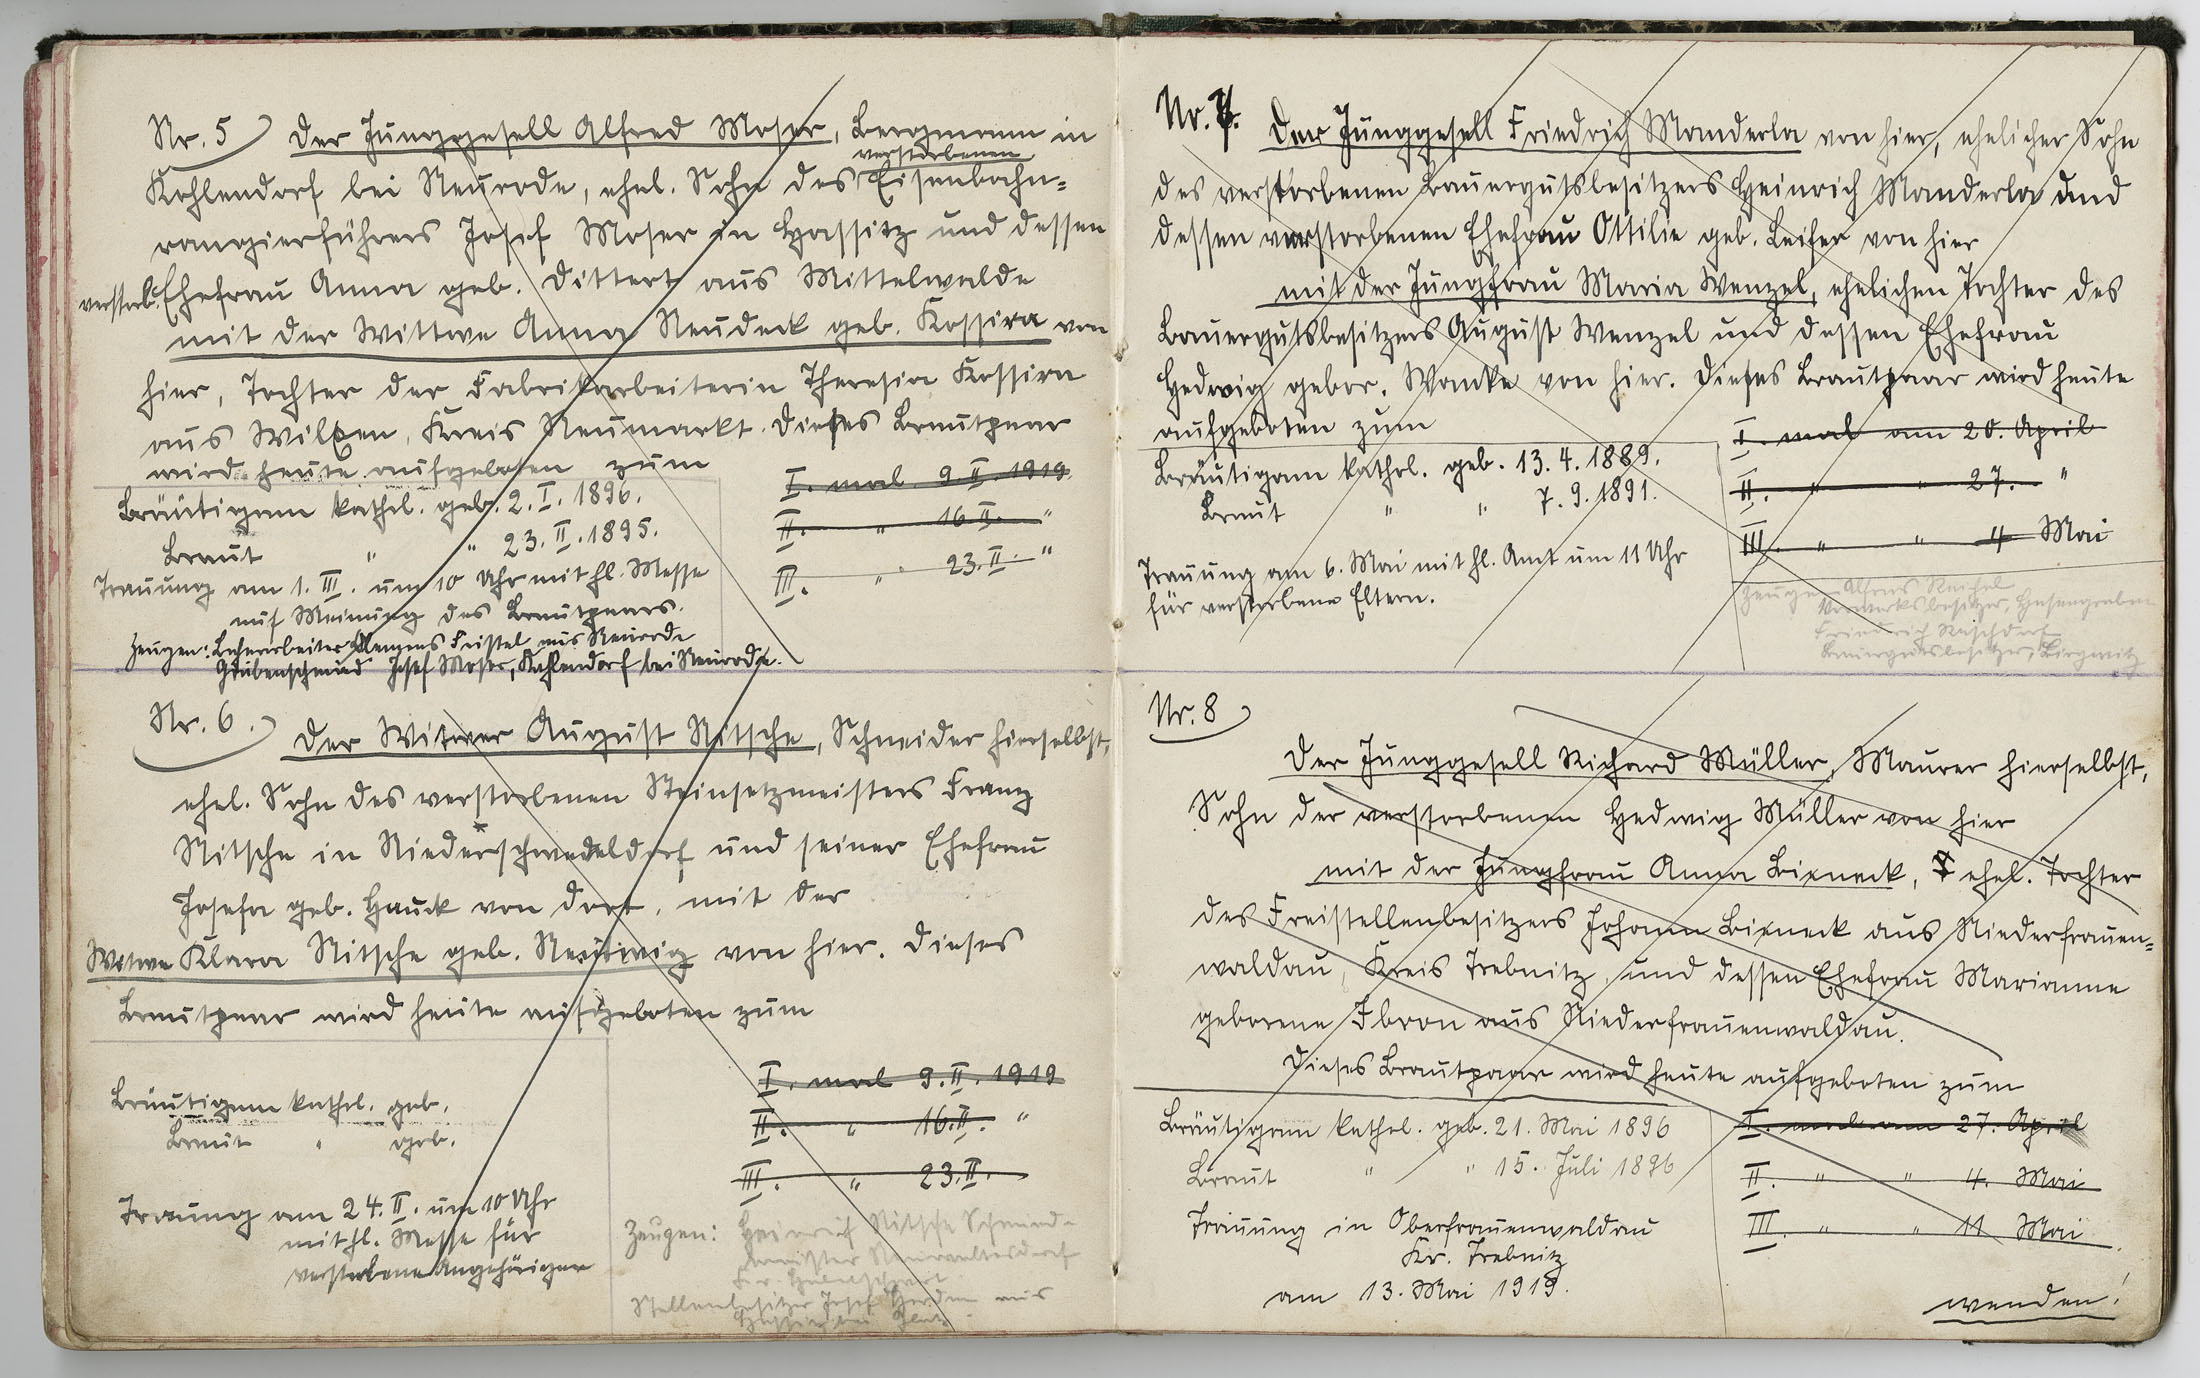 Nr. 5
Der Junggesell Alfred Moser, Bergmann in
verstorbenen
Kohlendorf bei Neurode, ehel. Sohn des Eisenbahn=
rangierführers Josef Moser in Hassitz und dessen
verstorb. Ehefrau Anna geb. Dittert aus Mittelwalde
mit der Wittwe Anna Neudeck geb. Kossira von
hier, Tochter der Fabrikarbeiterin Theresia Kossira
aus Wilxen, Kreis Neumarkt. Dieses Brautpaar
wird heute aufgeboten zum
I. mal 9. II. 1919
II. " 16. II. "
III. " 23. II. "
Bräutigam kathol. geb. 2. I. 1896.
Braut " " 23. II. 1895.
Trauung am 1. III. um 10 Uhr mit hl. Messe
auf Meinung des Brautpaars.
Zeugen: Klemens Feistel aus Neurode
Grubenschmied Josef Moser, Kohlendorf bei Neurode.
Nr. 6.
Der Witwer August Nitsche, Schneider hierselbst,
ehel. Sohn des verstorbenen Steinsetzmeisters Franz
Nitsche in Niederschwedeldorf und seiner Ehefrau
Josefa geb. Hauck von dort, mit der
Witwe Klara Nitsche geb. Nentwig von hier. Dieses
Brautpaar wird heute aufgeboten zum
I. mal 9. II. 1919
II. " 16. II. "
III. " 23. II.
Bräutigam kathol. geb.
Braut " geb.
Trauung am 24. II. um 10 Uhr
mit hl. Messe für
verstorbene Angehörigen
Zeugen: Heinrich Nitsche Schmiede-
meister
Stellenbesitzer Josef aus
Nr. 7.
Der Junggesell Friedrich Manderla von hier, ehelicher Sohn
des verstorbenen Bauergutsbesitzers Heinrich Manderla und
dessen verstorbenen Ehefrau Ottilie geb. Leifer von hier
mit der Jungfrau Maria Wenzel, ehelichen Tochter des
Bauergutsbesitzers August Wenzel und dessen Ehefrau
Hedwig gebor. Wanke von hier. Dieses Brautpaar wird heute
aufgeboten zum
I. mal am 20. April
II. " " 27. "
III. " " 4 Mai
Bräutigam kathol. geb. 13. 4. 1889.
Braut " " 7. 9. 1891.
Trauung am 6. Mai mit hl. Amt um 11 Uhr
für verstorbene Eltern.
Zeugen: Alfons Reichel
Vorwerksbesitzer, Hasengraben
Friedrich
Bauergutsbesitzer, Birgwitz
Nr. 8
Der Junggesell Richard Müller, Maurer hierselbst,
Sohn der verstorbenen Hedwig Müller von hier
mit der Jungfrau Anna Bieneck, ehel. Tochter
des Freistellenbesitzers Johann Bieneck aus Niederfrauen=
waldau, Kreis Trebnitz, und dessen Ehefrau Marianne
geborene Ibron aus Niederfrauenwaldau.
Dieses Brautpaar wird heute aufgeboten zum
I. mal am 27. April
II. " " 4. Mai
III. " " 11 Mai
Bräutigam kathol. geb. 21. Mai 1896
Braut " " 15. Juli 1896
Trauung in Oberfrauenwaldau
Kr. Trebnitz
am 13. Mai 1919.
wenden!